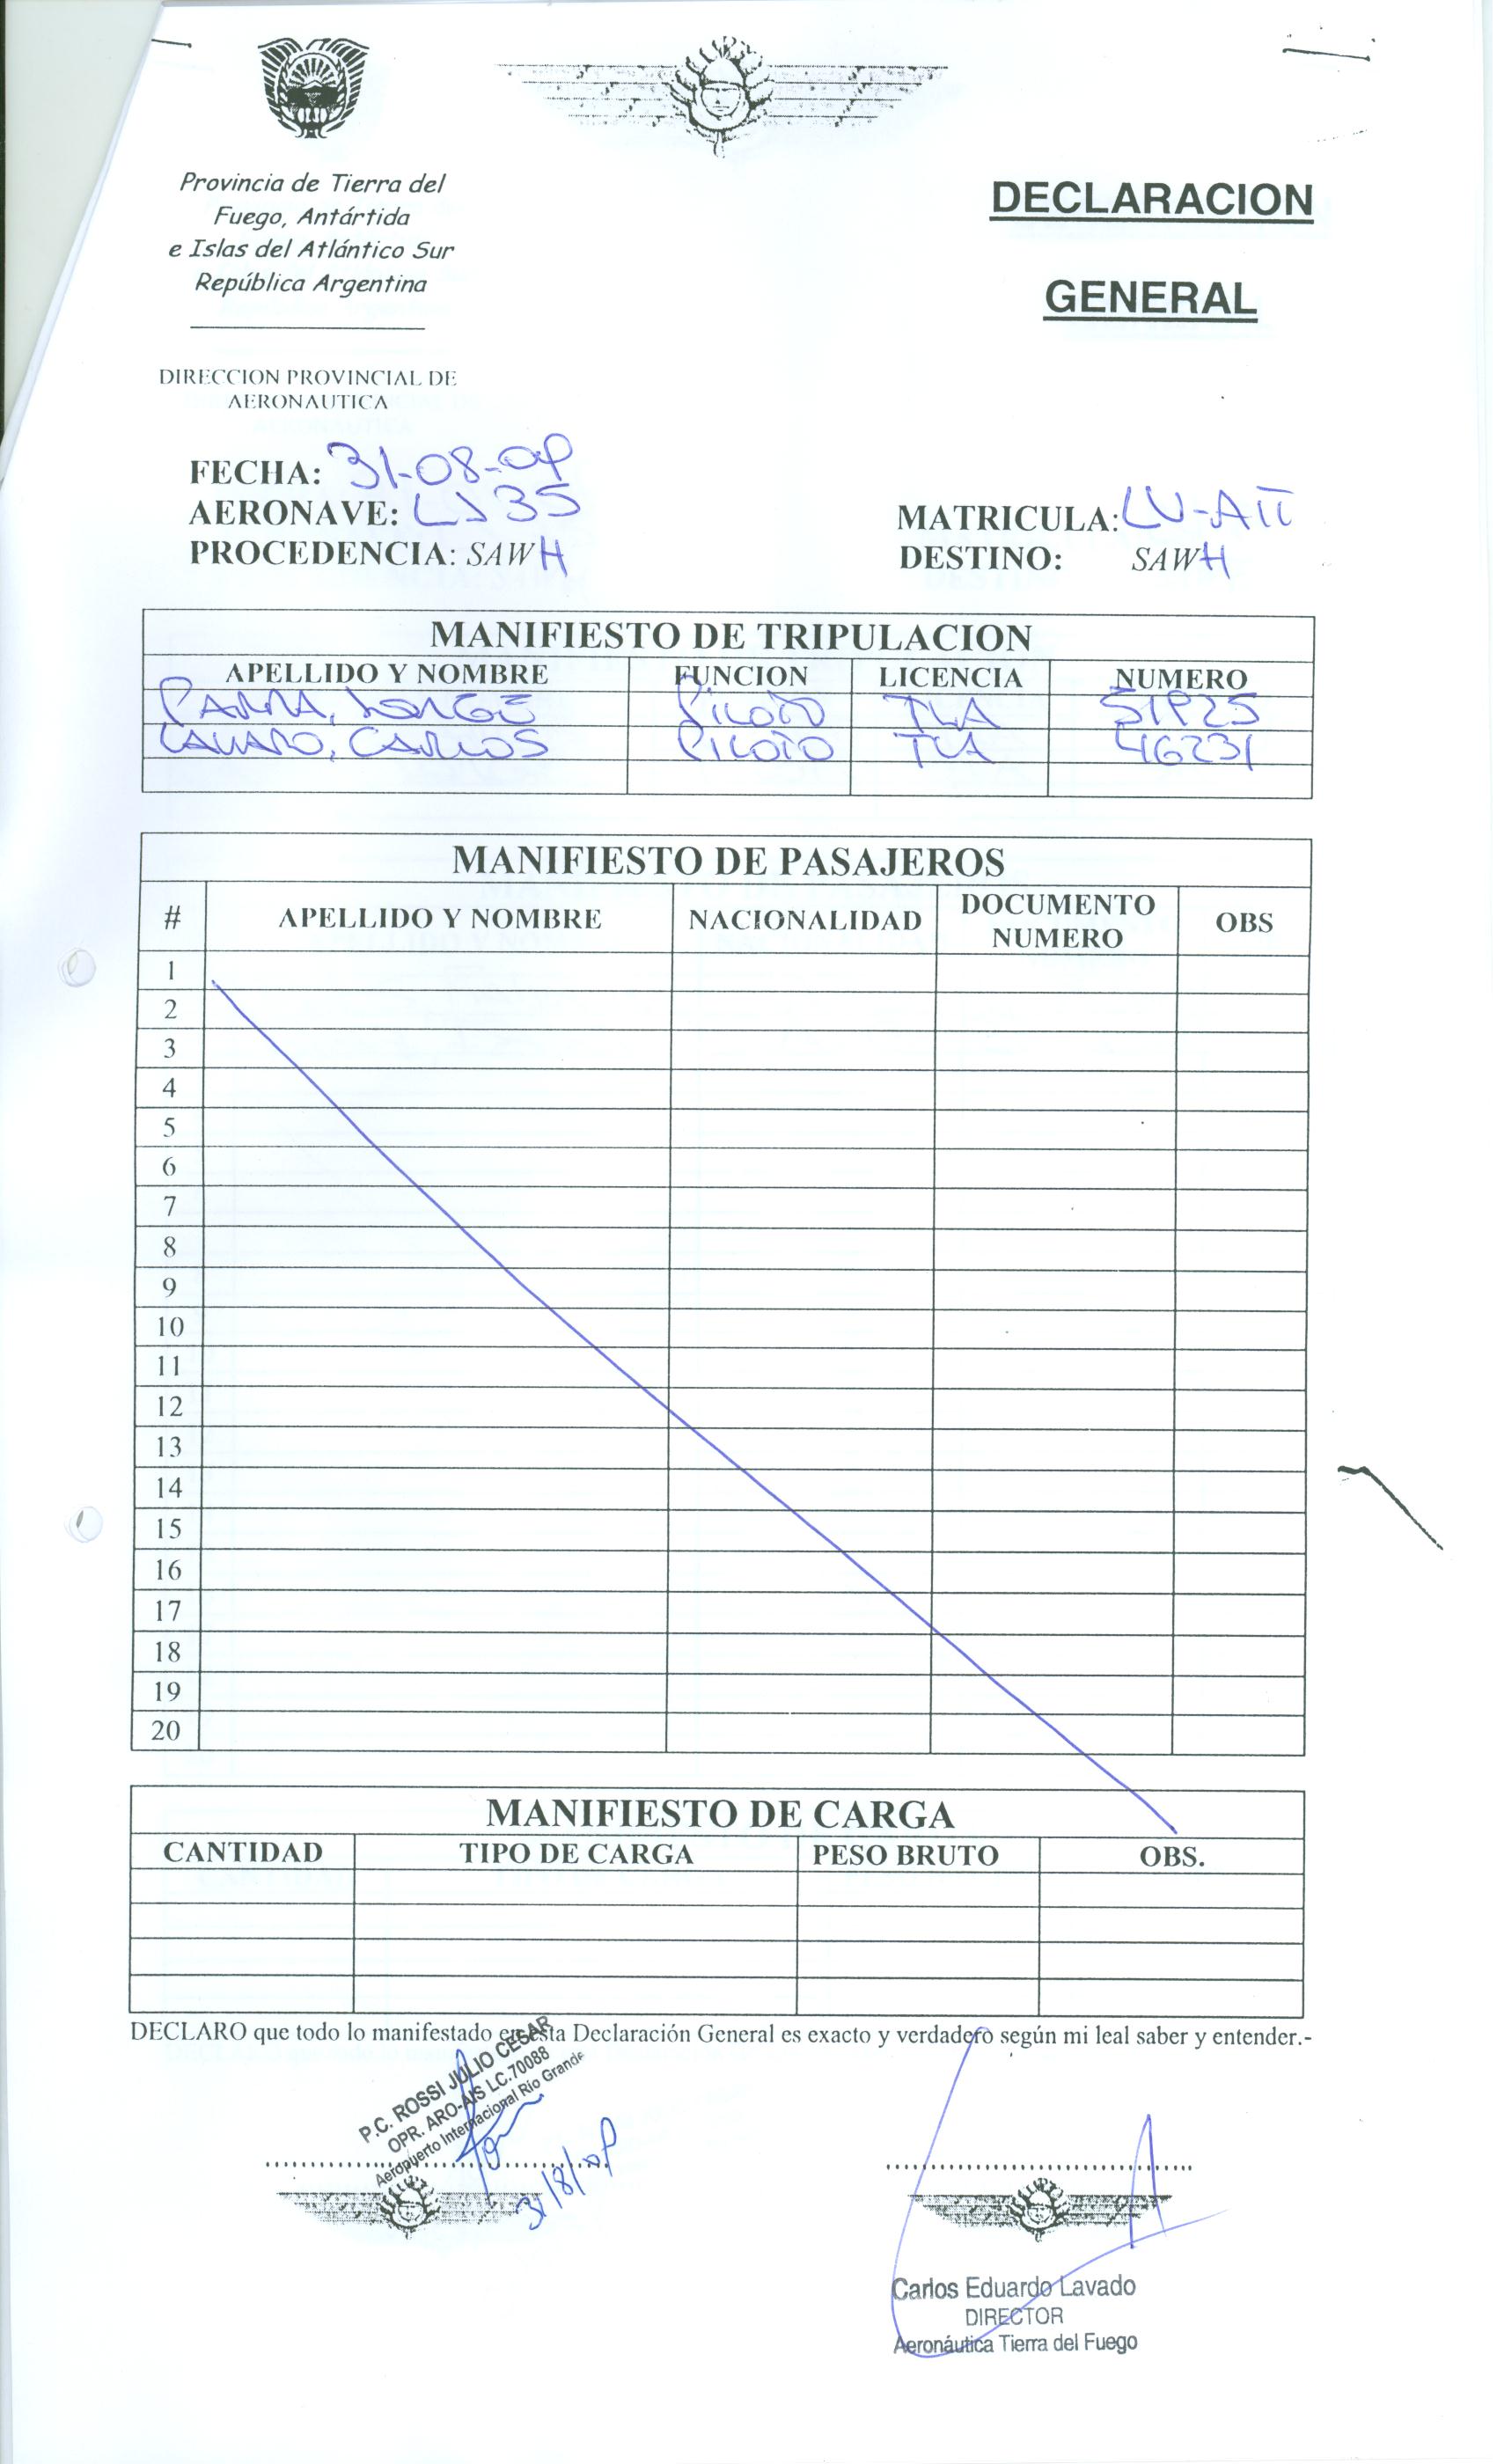 Provincia de Tierra del
Fuego, Antártida
e Islas del Atlántico Sur
República Argentina
DECLARACION
GENERAL
DIRECCION PROVINCIAL DE
AERONAUTICA
FECHA: 31-08-09
AERONAVE: LJ35
MATRICULA: LV-AIT
PROCEDENCIA: SAWH
DESTINO: SAWH
MANIFIESTO DE TRIPULACION
APELLIDO Y NOMBRE FUNCION LICENCIA NUMERO
PARRA, JORGE PILOTO TLA 51925
LAVADO, CARLOS PILOTO TLA 46231
MANIFIESTO DE PASAJEROS
# APELLIDO Y NOMBRE NACIONALIDAD DOCUMENTO NUMERO OBS
1
2
3
4
5
6
7
8
9
10
11
12
13
14
15
16
17
18
19
20
MANIFIESTO DE CARGA
CANTIDAD TIPO DE CARGA PESO BRUTO OBS.
DECLARO que todo lo manifestado en esta Declaración General es exacto y verdadero según mi leal saber y entender.-
P.C. ROSSI JULIO CESAR
OPR. ARO-AIS LC.70088
Aeropuerto Internacional Río Grande
31/8/09
Carlos Eduardo Lavado
DIRECTOR
Aeronáutica Tierra del Fuego